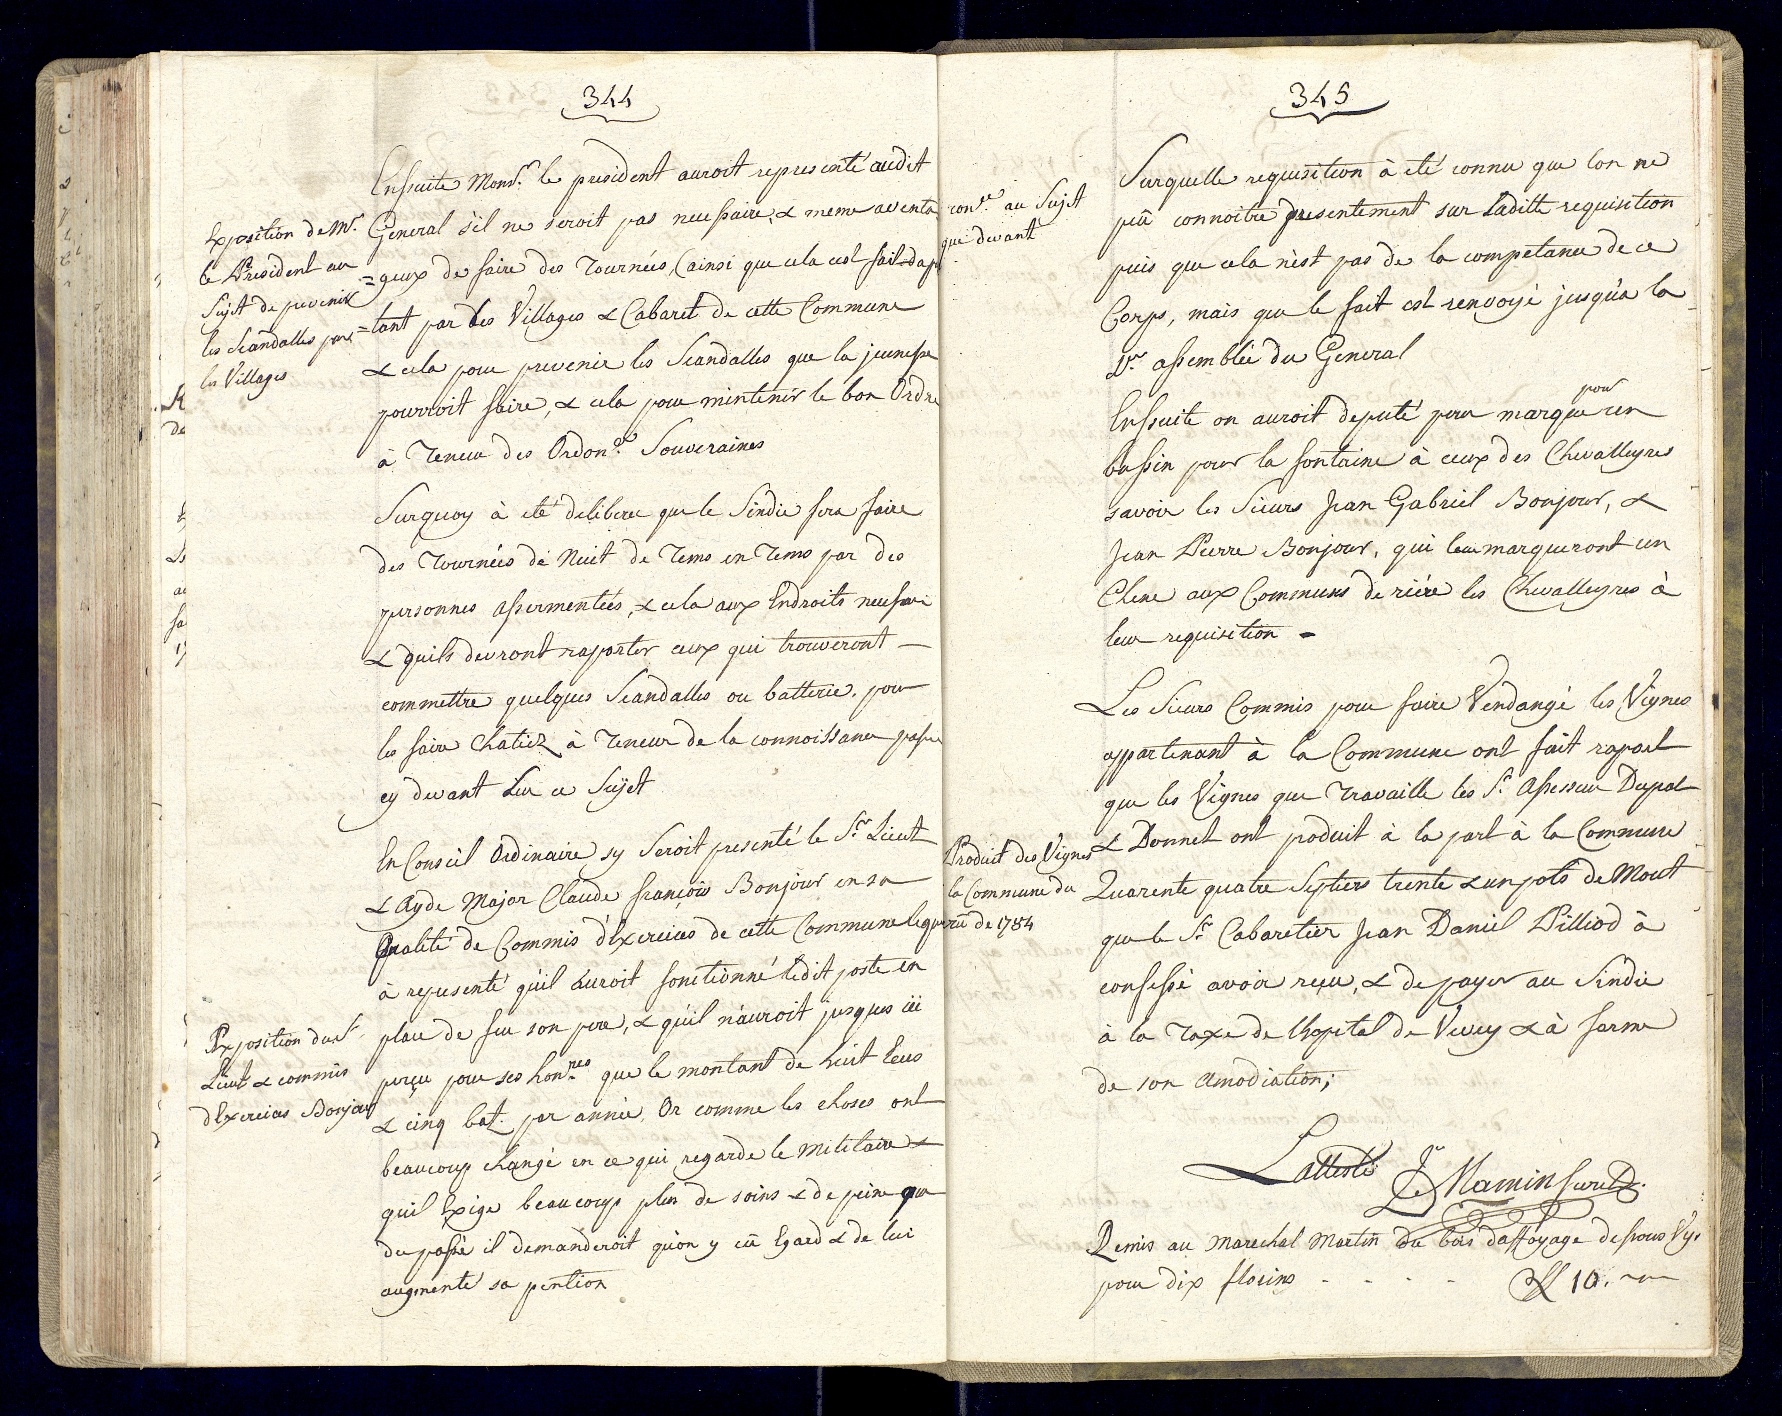 344
Exposition de Mr.
le President au
Sujet de prevenir
les Scandalles par
les Villages
Ensuite Monsr. le president auroit representé audit
General s'il ne seroit pas necessaire, & meme aventa
=geux de faire des Tournées, (ainsi que cela est fait d'ap
=tant par des Villages & Cabaret de cette Commune
& cela pour prevenir les Scandalles que la jeunesse
pourroit faire, & cela pour mintenir le bon Ordre
à Teneur des Ordon.es Souveraines
Surquoy à eté deliberé que le Sindic fera faire
des Tournées de Nuit de Tems en Tems par des
personnes assermentées, & cela aux Endroits necessai
& qu'ils devront raporter ceux qui trouveront
commettre quelques Scandalles ou batterie, pour
les faire Chatier à Teneur de la connoissance passée
cy devant sur ce Sujet
En Conseil Ordinaire sy Seroit presenté le Sr. Lieut
& Ayde Major Claude françois Bonjour en sa
Qualité de Commis d'Exercices de cette Commune lequel
à representé qu'il auroit fonctionné ledit poste en
Exposition du Sr.
Lieut & commis
d'Exercices Bonjour
place de feu son pere, & qu'il n'auroit jusques ici
perçu pour ses hon.res que le montant de huit Ecus
& cinq bat. par année, Or comme les choses ont
beaucoup changé en ce qui regarde le militaire &
qu'il Exige beaucoup plus de soins & de peine que
du passé il demanderoit qu'on y eu Egard & de lui
augmenté sa pention
345
con.ce au Sujet
que devant
Surquelle requisition à eté connu que l'on ne
peû connoitre presentement sur Laditte requisition
puis que cela n'est pas de la competance de ce
Corps, mais que le fait est renvoyé jusqu'à la
1re. assemblée du General
Ensuite on auroit deputé pour marqué pour un
bassin pour la fontaine à ceux des Chevalleyres
savoir les Sieurs Jean Gabriel Bonjour, &
Jean Pierre Bonjour, qui leur marqueront un
Chene aux Communs de riére les Chevalleyres à
leur requisition
Produit des Vignes
la Commune du
crû de 1784
Les Sieurs Commis pour faire Vendangé les Vignes
appartenant à la Commune ont fait raport
que les Vignes que Travaille les Srs. Assesseur Dupat
& Donnet ont poduit à la part à la Commune
Quarente quatre Septiers trente & un pots de Mout
que le Sr. Cabaretier Jean Daniel Pilliod à
confessé avoir reçu, & de payer au Sindic
à la Taxe de l'hopital de Vevey & à forme
de son Amodiation;
L'atteste Mamin Curial
Remis au Marechal Martin du bois d'affoyage dessous Vy.
pour dix florins - - - - ff 10.